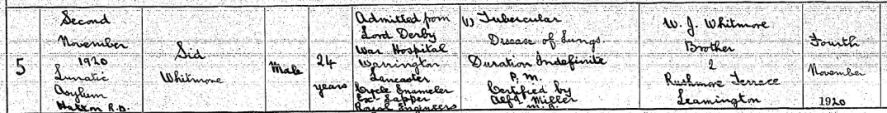 5
Second
November
1920
Lunatic
Asylum
Hatton R.D.
Sid
Whitmore
Male
24
years
Admitted from
Lord Derby
War Hospital
Warrington
Lancaster
Cycle Enameler
Ex Sapper
Royal Engineers
(1) Tubercular
Disease of Lungs.
Duration Indefinite
P.M.
Certified by
Alfd Miller
W. J. Whitmore
Brother
2
Rushmore Terrace
Leamington
Fourth
November
1920